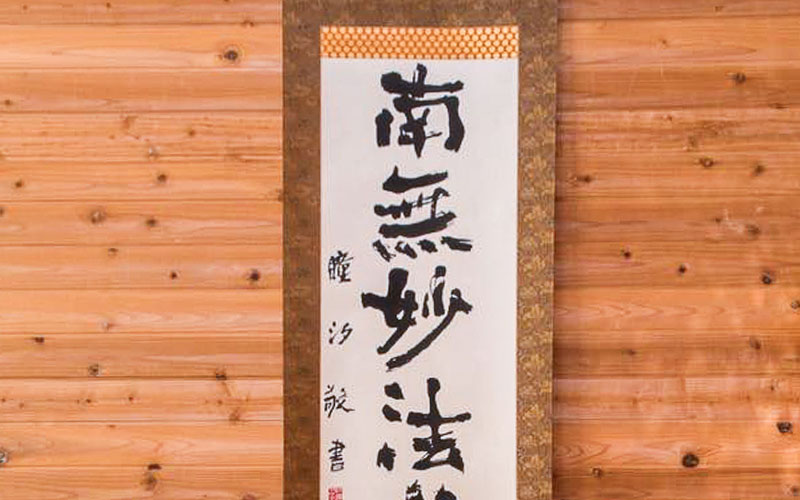 南無妙法
瞳汐敬書